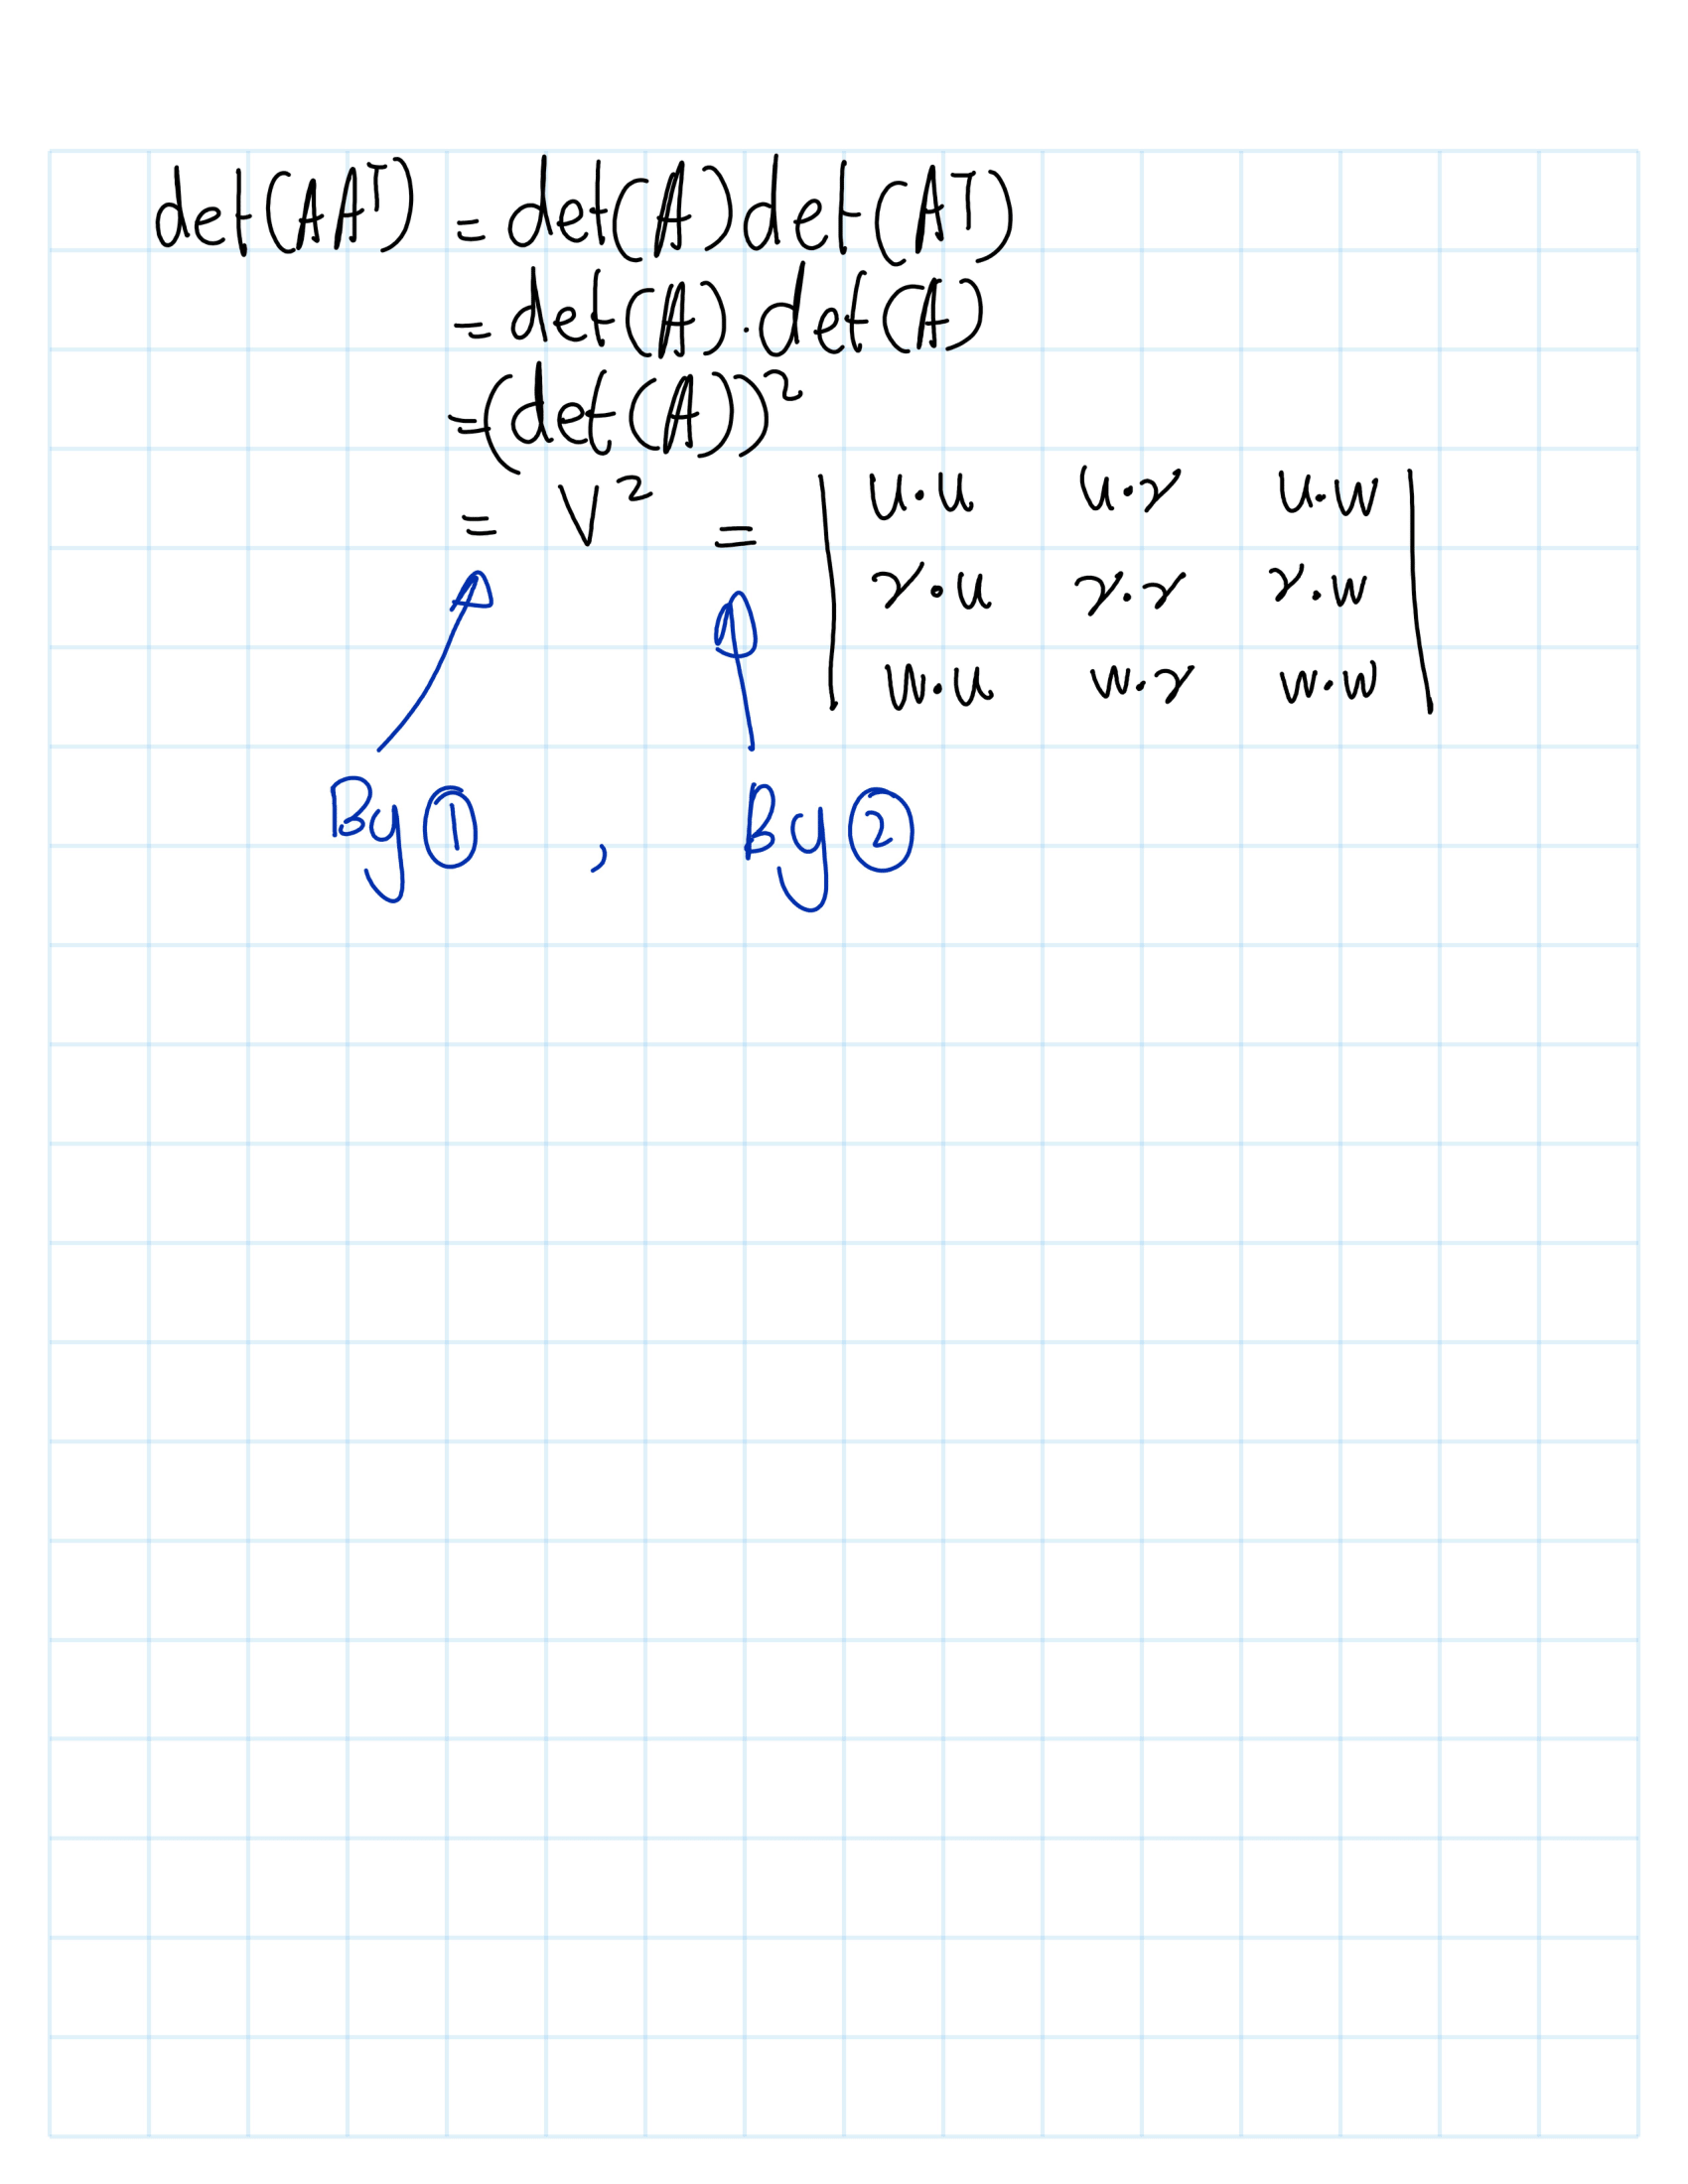 det(AAᵀ) = det(A)det(Aᵀ)
= det(A).det(A)
= (det(A))²
= V² = | u.u u.v u.w |
| v.u v.v v.w |
| w.u w.v w.w |
By ① , By ②